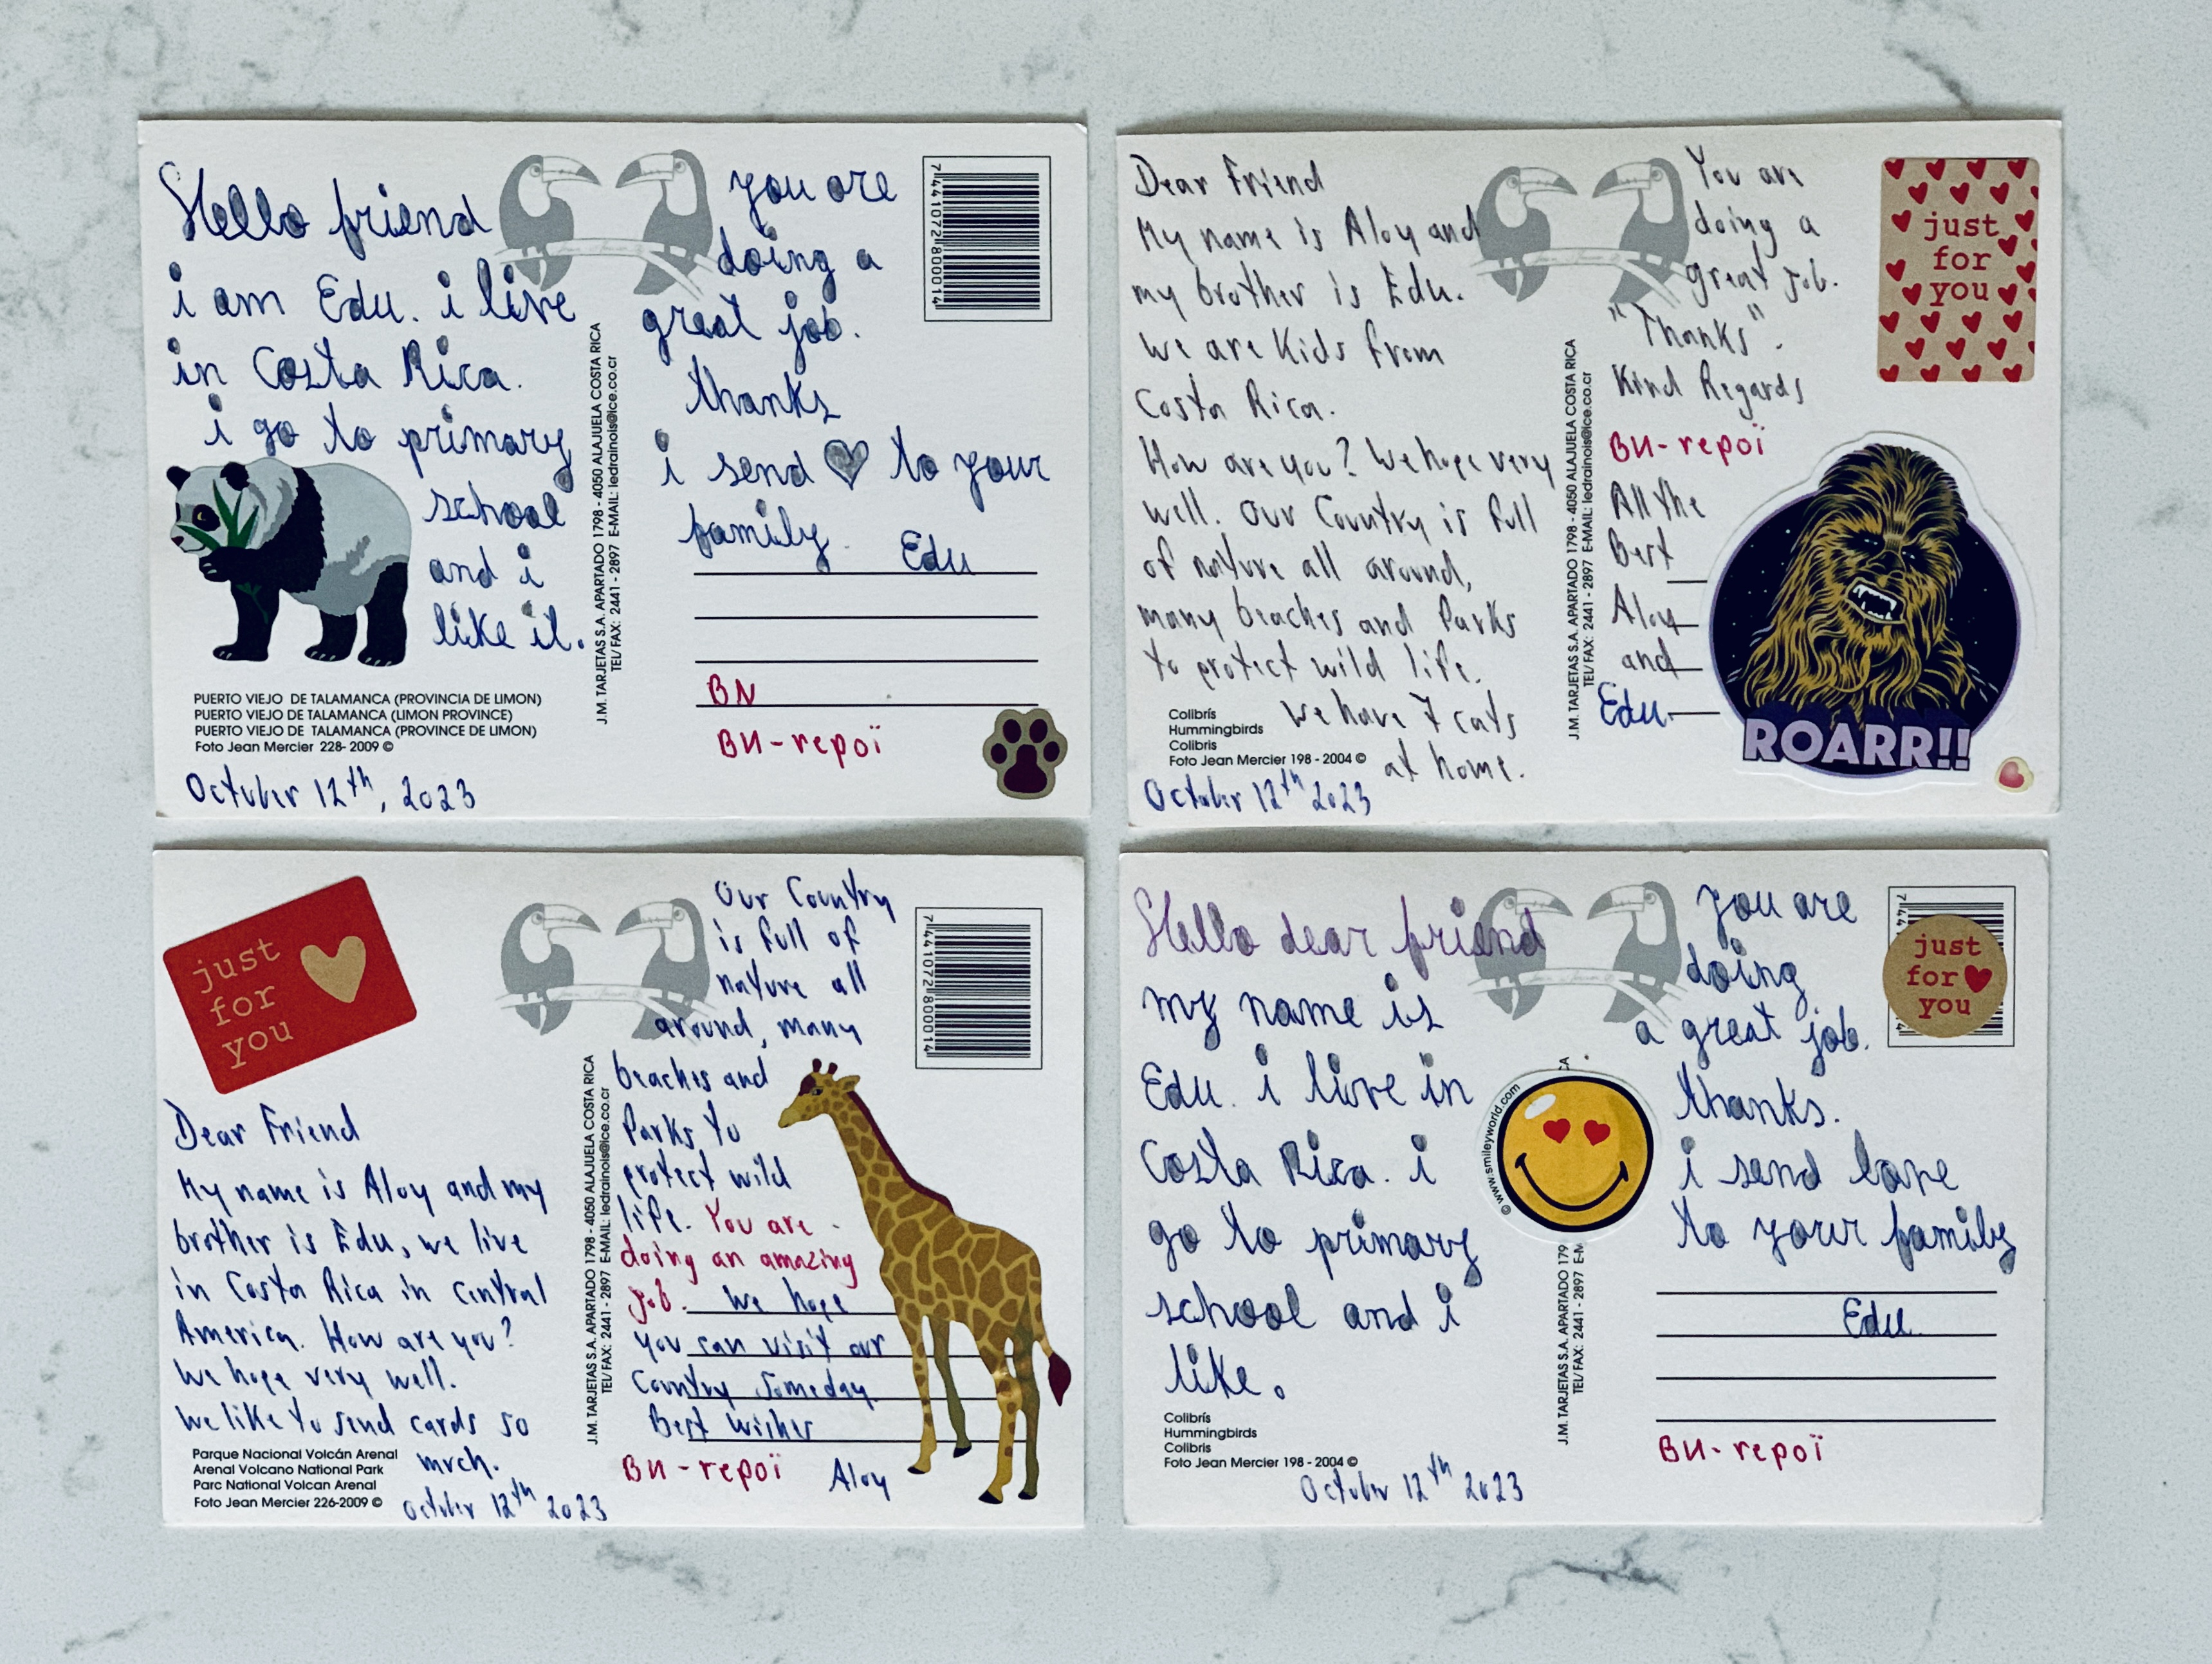 Hello friend
i am Edu. i live
in Costa Rica.
i go to primary
school
and i
like it.
PUERTO VIEJO DE TALAMANCA (PROVINCIA DE LIMON)
PUERTO VIEJO DE TALAMANCA (LIMON PROVINCE)
PUERTO VIEJO DE TALAMANCA (PROVINCE DE LIMON)
Foto Jean Mercier 228-2009 ©
October 12th, 2023
J.M. TARJETAS S.A. APARTADO 1798 - 4050 ALAJUELA COSTA RICA
TEL/ FAX: 2441 - 2897 E-MAIL: ledrainois@ice.co.cr
you are
doing a
great job.
thanks
i send ♥ to your
family. Edu
BN
BN-repoï
7441072800014
Dear Friend
My name is Aloy and
my brother is Edu.
We are Kids from
Costa Rica.
How are you? We hope very
well. Our Country is full
of nature all around,
many beaches and Parks
to protect wild life.
We have 7 cats
at home.
Colibrís
Hummingbirds
Colibris
Foto Jean Mercier 198 - 2004 ©
October 12th 2023
J.M. TARJETAS S.A. APARTADO 1798 - 4050 ALAJUELA COSTA RICA
TEL/ FAX: 2441 - 2897 E-MAIL: ledrainois@ice.co.cr
You are
doing a
great job.
"Thanks".
Kind Regards
BN-repoï
All the
Best
Aloy
and
Edu.
just
for
you
ROARR!!
just
for
you
Dear Friend
My name is Aloy and my
brother is Edu, we live
in Costa Rica in central
America. How are you?
We hope very well.
We like to send cards so
much.
Parque Nacional Volcán Arenal
Arenal Volcano National Park
Parc National Volcan Arenal
Foto Jean Mercier 226-2009 ©
October 12th 2023
J.M. TARJETAS S.A. APARTADO 1798 - 4050 ALAJUELA COSTA RICA
TEL/ FAX: 2441 - 2897 E-MAIL: ledrainois@ice.co.cr
Our Country
is full of
nature all
around, many
beaches and
Parks to
protect wild
life. You are
doing an amazing
job. We hope
you can visit our
Country someday
Best wishes
BN-repoï Aloy
7441072800014
Hello dear friend
my name is
Edu. i live in
Costa Rica. i
go to primary
school and i
like.
Colibrís
Hummingbirds
Colibris
Foto Jean Mercier 198 - 2004 ©
October 12th 2023
© www.smileyworld.com
CA
J.M. TARJETAS S.A. APARTADO 179
TEL/ FAX: 2441 - 2897 E-M
you are
doing
a great job.
thanks.
i send love
to your family
Edu.
BN-repoï
just
for ♥
you
744
4